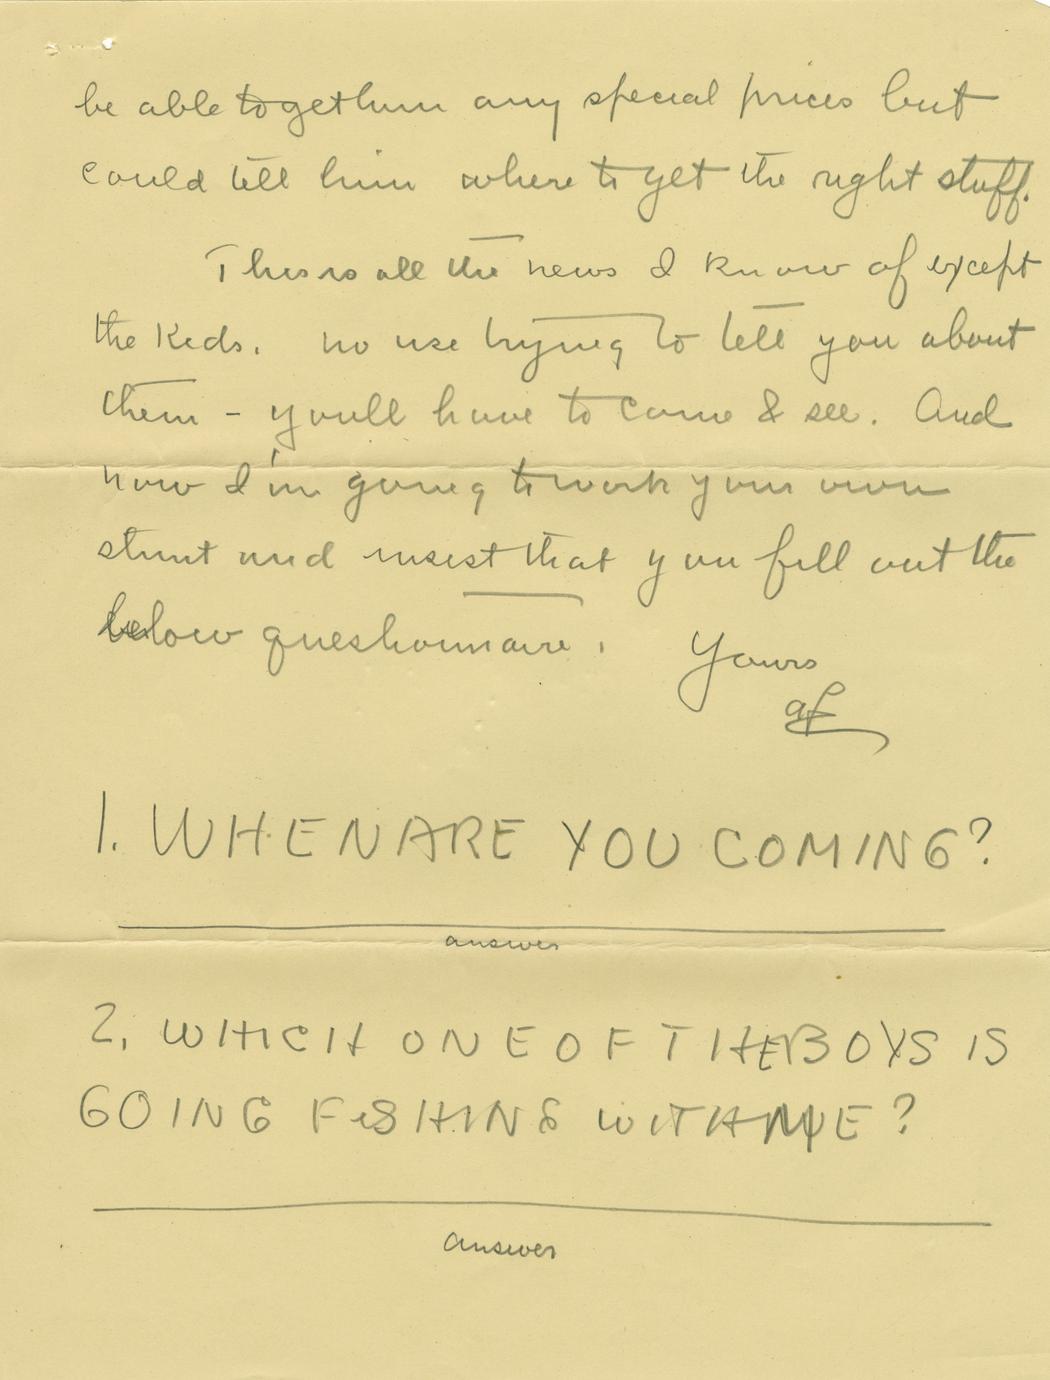 be able to get him any special prices but
could tell him where to get the right stuff.
This is all the news I know of except
the Kids. no use trying to tell you about
them - youll have to come & see. And
now I'm going to work your own
stunt and insist that you fill out the
below questionnaire.
Yours
af
1. WHEN ARE YOU COMING?
answer
2. WHICH ONE OF THE BOYS IS
GOING FISHING WITH ME?
answer